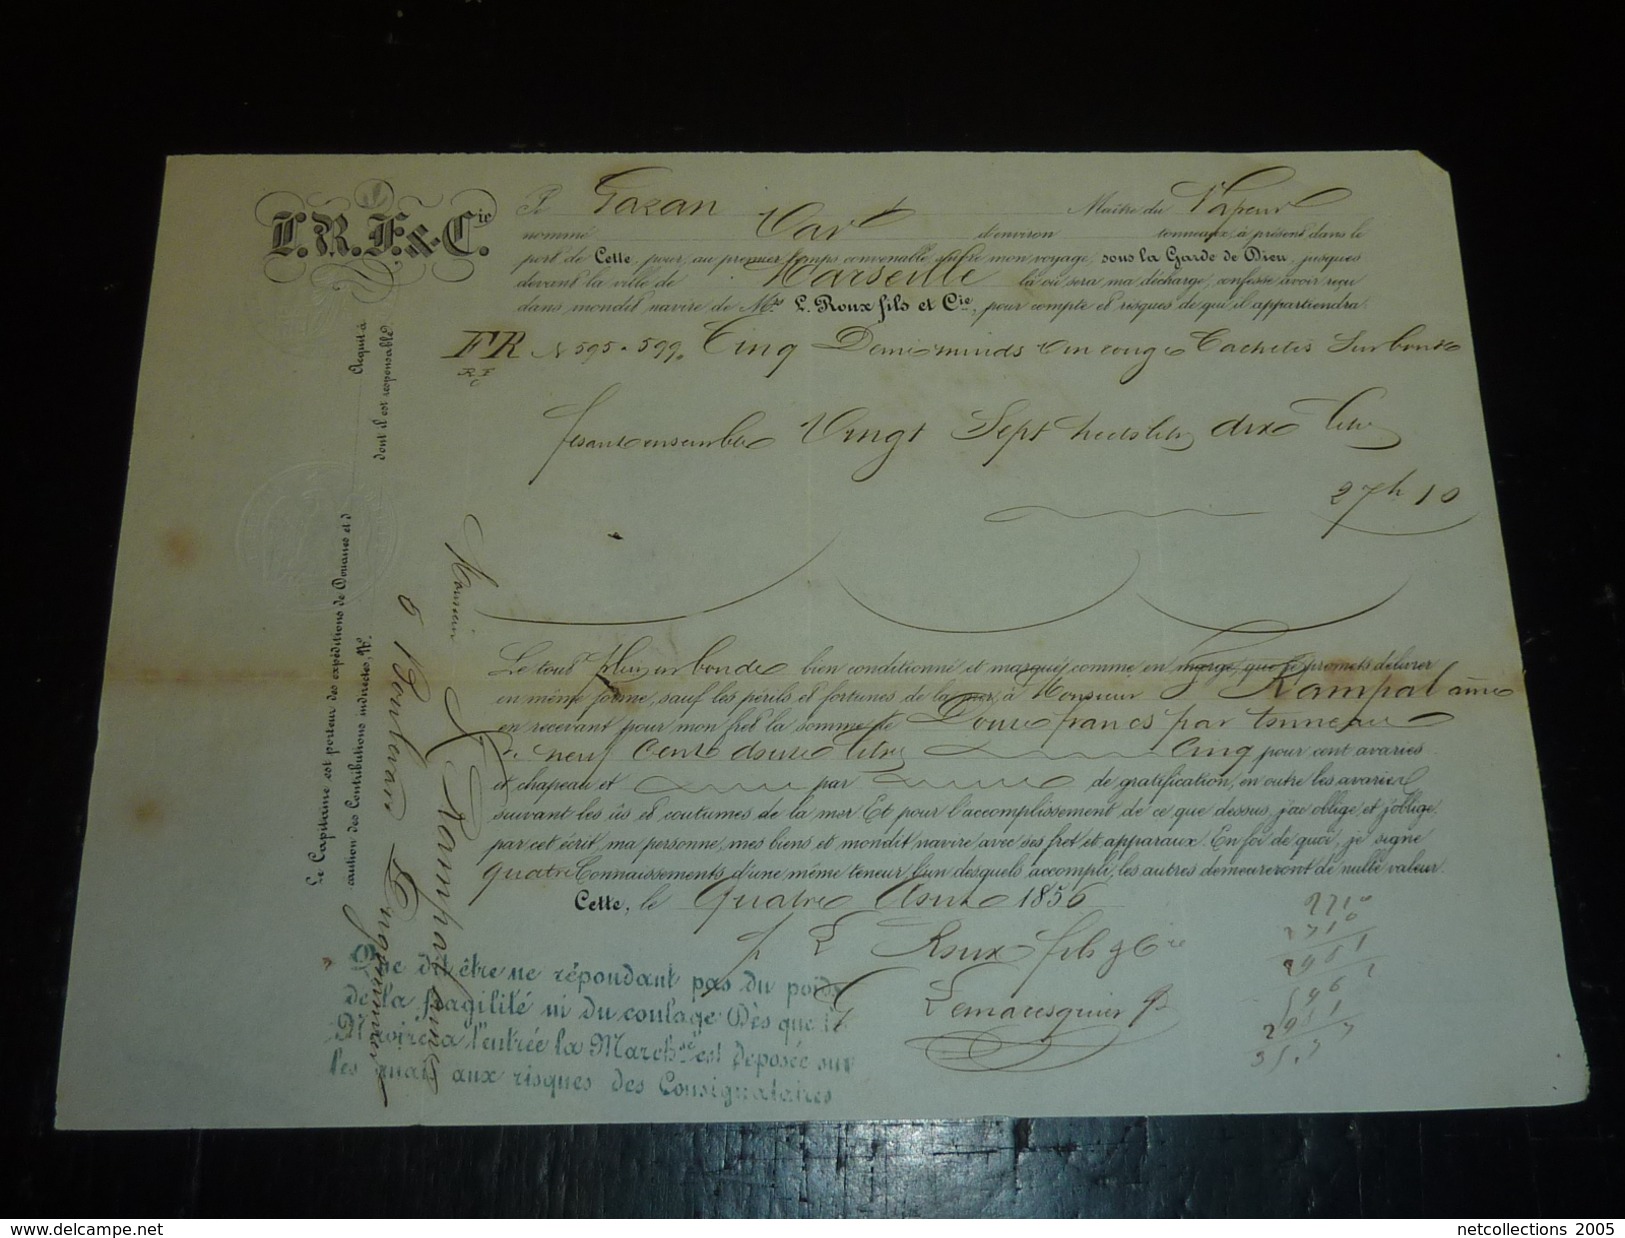 L.R.F. & Cie
Je Gazan Maître du Vapeur
nommé Var d'environ tonneaux, à présent dans le
port de Cette, pour, au premier temps convenable, suivre mon voyage, sous la Garde de Dieu, jusques
devant la ville de Marseille là où sera ma décharge, confesse avoir reçu
dans mondit navire de Mrs L. Roux fils et Cie, pour compte et risques de qui il appartiendra.
FR N 595 a 599 Cinq Demi muids vin rouge Cachetés Sur bonde
RF
C
faisant ensemble Vingt Sept hectolit dix lit
27h 10
Le tout plein en bonde bien conditionné et marqué comme en marge, que je promets délivrer
en même forme, sauf les périls et fortunes de la mer, à Monsieur F Rampal aîné
en recevant pour mon fret la somme de Douze francs par tonneau
de neuf Cent douze lit Cinq pour cent avaries
et chapeau et par de gratification, en outre les avaries
suivant les ûs et coutumes de la mer Et pour l'accomplissement de ce que dessus, j'ai obligé et j'oblige
par cet écrit, ma personne, mes biens et mondit navire avec ses fret et apparaux. En foi de quoi, je signe
quatre Connaissements d'une même teneur l'un desquels accompli, les autres demeureront de nulle valeur.
Cette, le quatre Aout 1856
p L Roux fils & Cie
Que dit être ne répondant pas du poids
de la fragilité ni du coulage Dès que le
Navire a l'entrée la Marchse est deposée sur
les quais aux risques des Consignataires
2710
Le Capitaine est porteur des expéditions de Douanes et d Acquit à
caution des Contributions indirectes, No. dont il est responsable.
Monsieur F. Rampal aine
6 Boulevard
www.delcampe.net
netcollections 2005